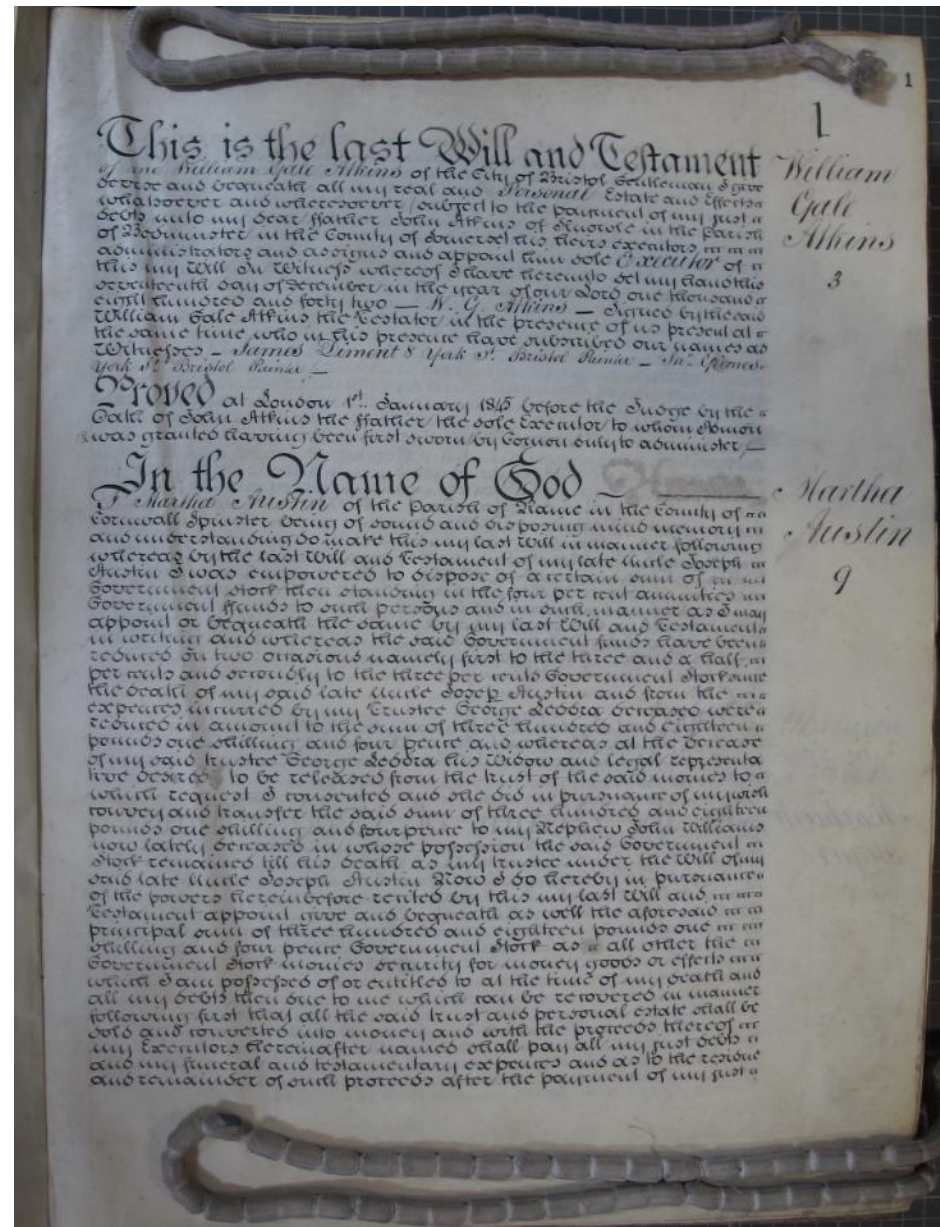 1
1
This is the last Will and Testament
of me William Gale Atkins of the City of Bristol Gentleman I give
devise and bequeath all my real and Personal Estate and Effects
whatsoever and wheresoever (subject to the payment of my just
debts unto my dear ffather John Atkins of in the Parish
of Bedminster in the County of Somerset his heirs executors
administrators and assigns and appoint him sole Executor of
this my Will In Witness whereof I have hereunto set my hand this
seventeenth day of December in the year of our Lord one thousand
eight hundred and forty two — W. G. Atkins — Signed by the said
William Gale Atkins the Testator in the presence of us present at
the same time who in his presence have subscribed our names as
Witnesses – James Liment 8 York St. Bristol Painter – Jno.
York St. Bristol Painter –
William
Gale
Atkins
3
Proved at London 1st. January 1845 before the Judge by the
Oath of John Atkins the ffather the sole Executor to whom Admon
was granted having been first sworn by Comon only to administer –
In the Name of God
I Martha Austin of the Parish of Mame in the County of
Cornwall Spinster being of sound and disposing mind memory
and understanding do make this my last Will in manner following
whereas by the last Will and Testament of my late Uncle Joseph
Austin I was empowered to dispose of a certain sum of
Government Stock then standing in the four per cent annuities
Government ffunds to such persons and in such manner as I may
appoint or bequeath the same by my last Will and Testament
in writing and whereas the said Government funds have been
reduced on two occasions namely first to the three and a half
per cents and secondly to the three per cents Government Stock since
the death of my said late Uncle Joseph Austin and from the
expences incurred by my Trustee George Leddra deceased were
reduced in amount to the sum of three hundred and eighteen
pounds one shilling and four pence and whereas at the decease
of my said trustee George Leddra his Widow and legal representa
tive desired to be released from the trust of the said monies to
which request I consented and she did in pursuance of my wish
convey and transfer the said sum of three hundred and eighteen
pounds one shilling and fourpence to my Nephew John Williams
now lately deceased in whose possession the said Government
Stock remained till his death as my trustee under the Will of my
said late Uncle Joseph Austin Now I do hereby in pursuance
of the powers hereinbefore recited by this my last Will and
Testament appoint give and bequeath as well the aforesaid
principal sum of three hundred and eighteen pounds one
shilling and four pence Government Stock as all other the
Government Stock monies security for money goods or effects
which I am possessed of or entitled to at the time of my death and
all my debts then due to me which can be recovered in manner
following first that all the said trust and personal estate shall be
sold and converted into money and with the proceeds thereof
my Executors hereinafter named shall pay all my just debts
and my funeral and testamentary expences and as to the residue
and remainder of such proceeds after the payment of my just
Martha
Austin
9